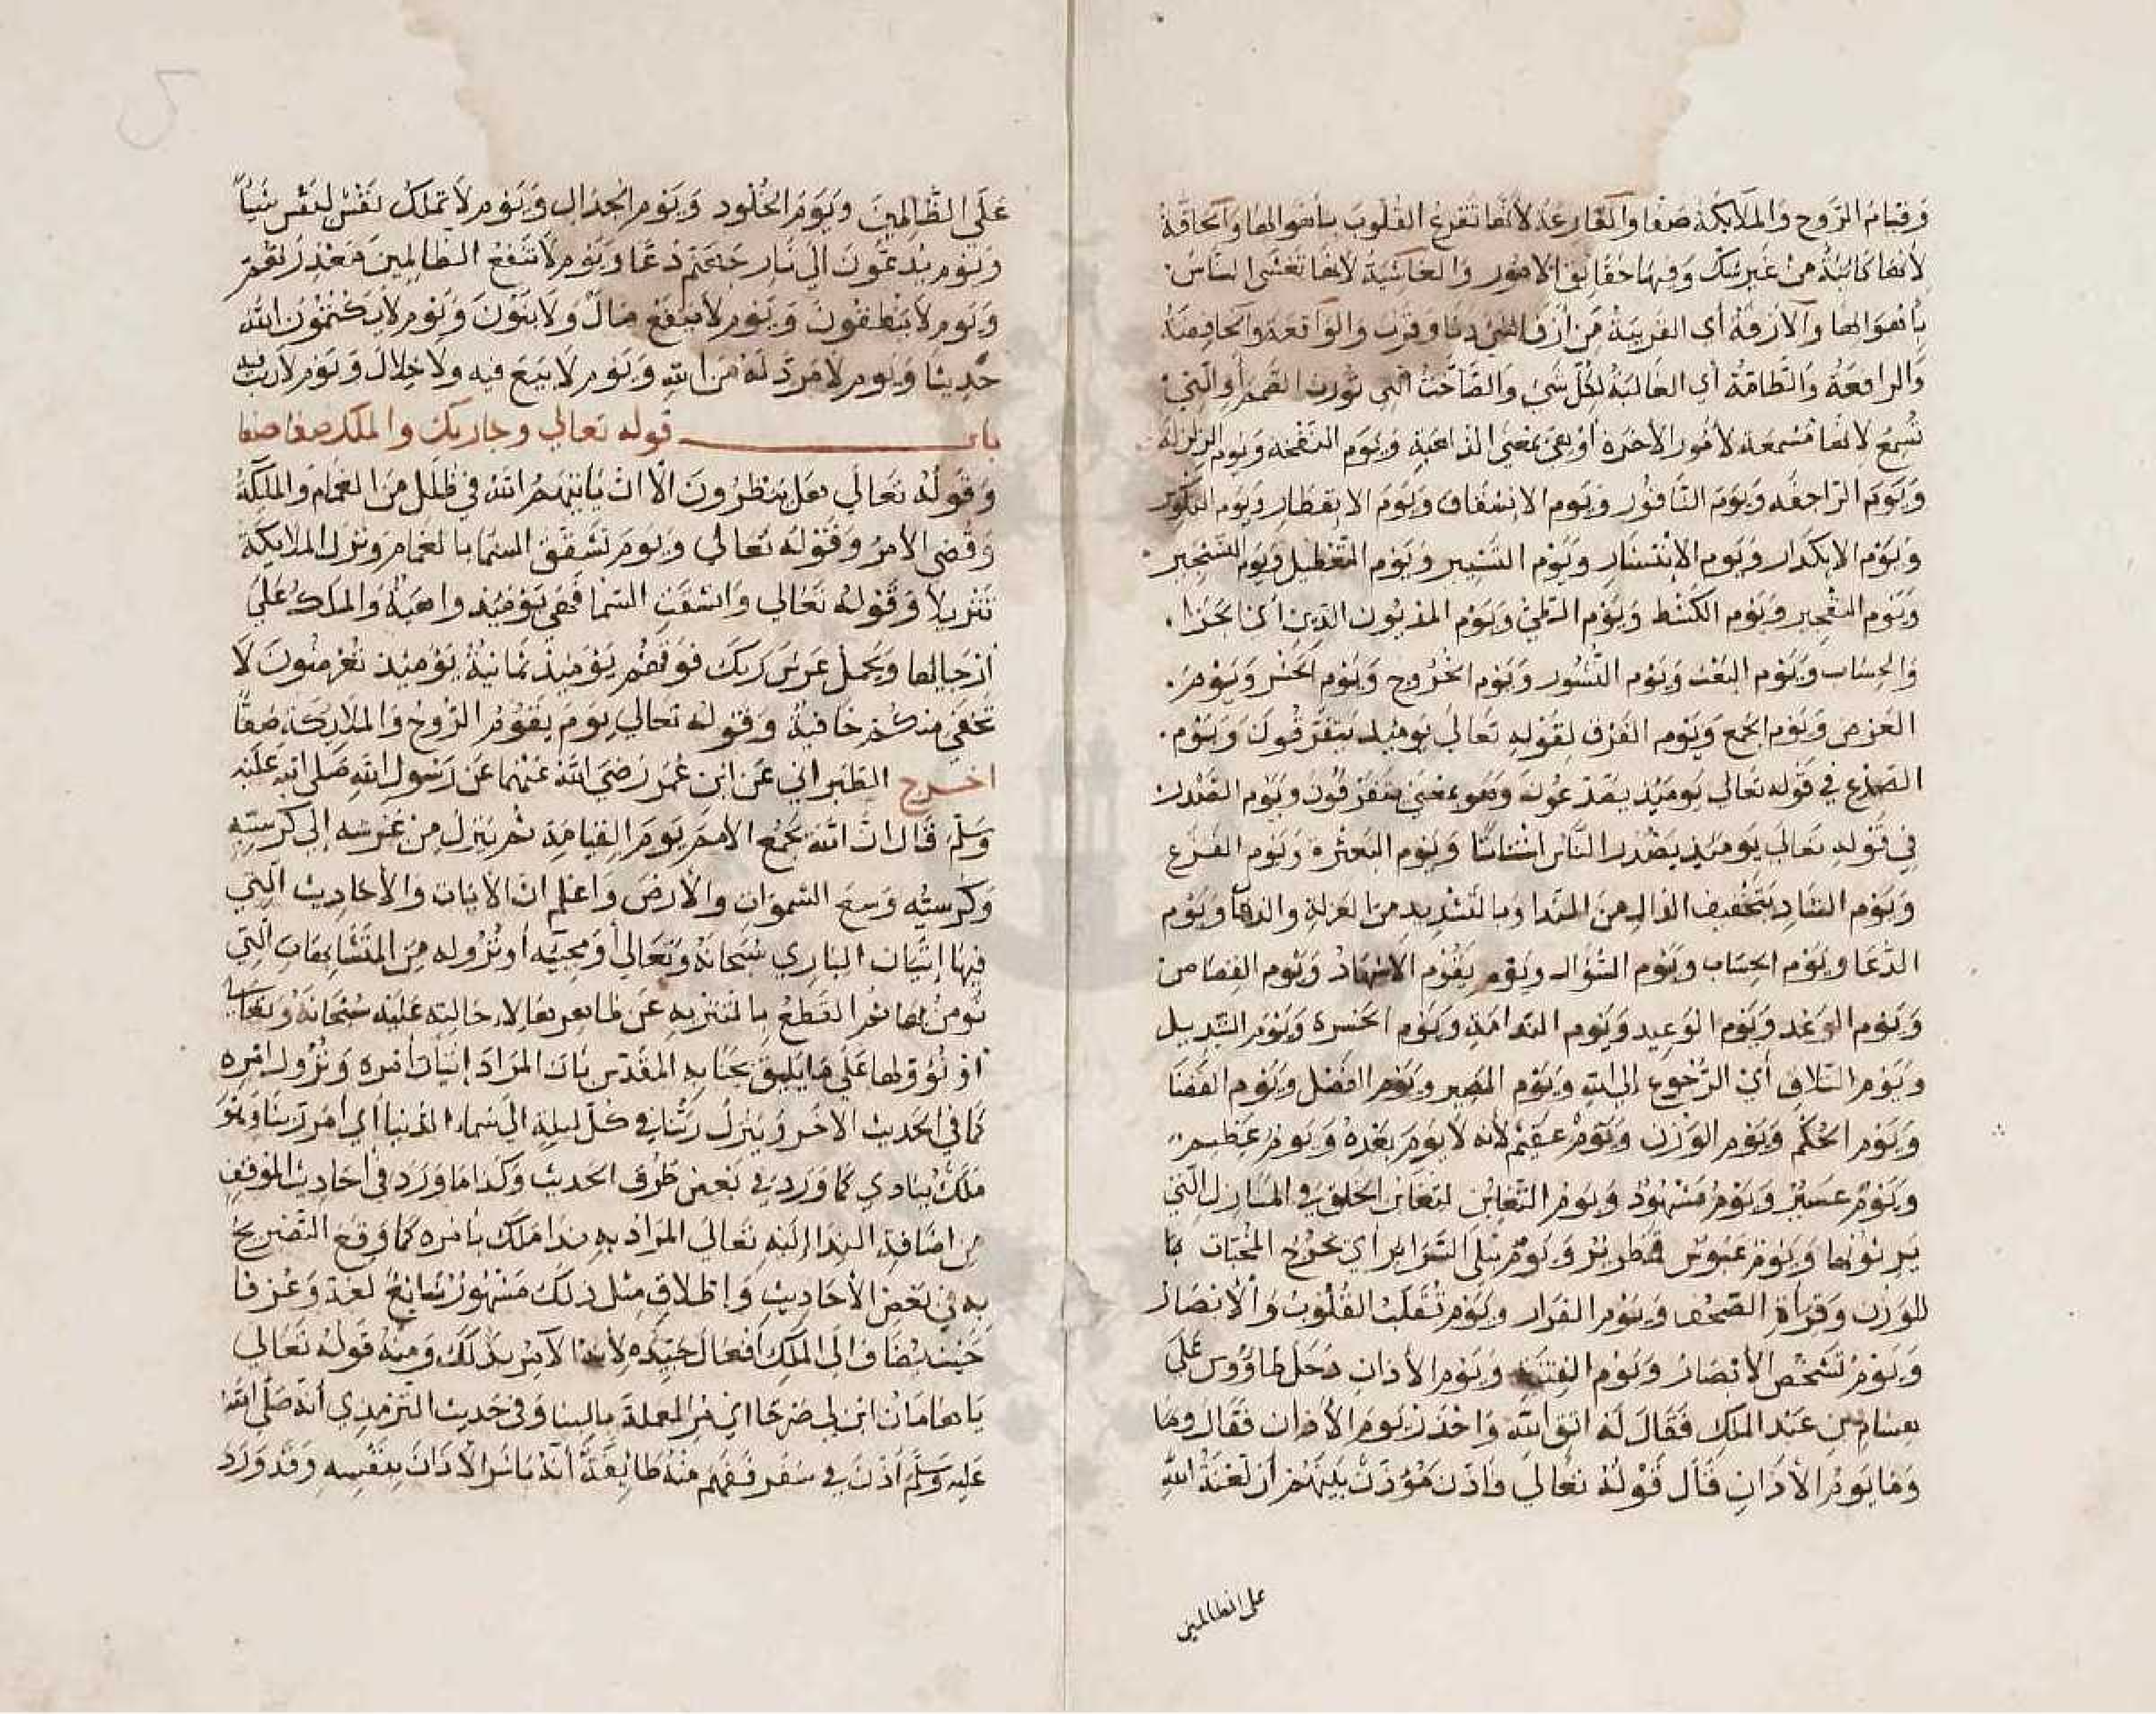 وقيام الروح والملايكة صفا والقارعة لأنها تقرع القلوب بأهوالها والحاقة
لأنها كائنة من غير شك وفيها حقايق الأمور والغاشية لأنها تغشى الناس
بأهوالها والآزفة أي القريبة من أزف دنا وقرب والواقعة والخافضة
والرافعة والطامة أي الغالبة لكل شئ والصاخة التي تورث الصمم والتي
تسمع لأنها مسمعة لأمور الآخرة أو هي بمعنى الداهية ويوم النفخة ويوم الزلزلة
ويوم الراجفة ويوم الناقور ويوم الانشقاق ويوم الانفطار ويوم التكوير
ويوم الانكدار ويوم الانتشار ويوم التسيير ويوم التعطيل ويوم التسجير
ويوم التفجير ويوم الكشط ويوم الطي ويوم المديون الدين أي الجزا
والحساب ويوم البعث ويوم النشور ويوم الخروج ويوم الحشر ويوم
العرض ويوم الجمع ويوم الفرق لقوله تعالى يوميذ يتفرقون ويوم
الصدع في قوله تعالى يوميذ يصدعون وهو بمعنى يتفرقون ويوم الصدر
في قوله تعالى يوميذ يصدر الناس اشتاتا ويوم البعثرة ويوم الفزع
ويوم التناد بتخفيف الدال من الندا وبالتشديد من ويوم
الدعا ويوم الحساب ويوم السؤال ويوم يقوم الأشهاد ويوم القصاص
ويوم الوعد ويوم الوعيد ويوم الندامة ويوم الحسرة ويوم التبديل
ويوم التلاق أي الرجوع إلى الله ويوم المصير ويوم الفصل ويوم القضا
ويوم الحكم ويوم الوزن ويوم عقيم لأنه لا يوم بعده ويوم عظيم
ويوم عسير ويوم مشهود ويوم التغابن لتغابن الخلق في المنازل التي
يرثونها ويوم عبوس قمطرير ويوم تبلى السراير أي تخرج المخبات بها
للوزن وقراة الصحف ويوم الفرار ويوم تقلب القلوب والأبصار
ويوم تشخص الأبصار ويوم الفتنة ويوم الأذان دخل طاووس على
هشام بن عبد الملك فقال له اتق الله واحذر يوم الأذان فقال وما
وما يوم الأذان قال قوله تعالى فأذن مؤذن بينهم أن لعنة الله
على الظالمين
على الظالمين ويوم الخلود ويوم الجدال ويوم لا تملك نفس لنفس شيئا
ويوم يدعون الى نار جهنم دعا ويوم لا تنفع الظالمين معذرتهم
ويوم لا ينطقون ويوم لا ينفع مال ولا بنون ويوم لا يكتمون الله
حديثا ويوم لا مرد له من الله ويوم لا بيع فيه ولا خلال ويوم لا ريب فيه
باب قوله تعالى وجا ربك والملك صفا صفا
وقوله تعالى هل ينظرون الا ان ياتيهم الله في ظلل من الغمام والملئكة
وقضي الامر وقوله تعالى ويوم تشقق السما بالغمام ونزل الملايكة
تنزيلا وقوله تعالى وانشقت السما فهي يوميذ واهية والملك على
ارجايها ويحمل عرش ربك فوقهم يوميذ ثمانية يوميذ تعرضون لا
تخفى منكم خافية وقوله تعالى يوم يقوم الروح والملايكة صفا
اخرج الطبراني عن ابن عمر رضي الله عنهما عن رسول الله صلى الله عليه
وسلم قال ان الله يجمع الامم يوم القيامة ثم ينزل من عرشه إلى كرسيه
وكرسيه وسع السموات والأرض واعلم ان الآيات والأحاديث التي
فيها إتيان الباري سبحانه وتعالى أو مجيئه أو نزوله من المتشابهات التي
نومن بها ثم القطع بالتنزيه عن ظاهرها لاحالته عليه سبحانه وتعالى
او نؤولها على ما يليق بجنابه المقدس بان المراد إتيان أمره ونزول أمره
كما في الحديث الآخر وينزل ربنا في كل ليلة الى سماء الدنيا أي أمر ربنا وهو
ملك ينادي كما ورد في بعض طرق الحديث وكذا ما ورد في احاديث الموقف
من اضافة الندا إليه تعالى المراد به ندا ملك بأمره كما وقع التصريح
به في بعض الأحاديث وإطلاق مثل ذلك مشهور شايع لغة وعرفا
حيث يضاف الى الملك افعال جنده لأنه الآمر بذلك ومنه قوله تعالى
يا هامان ابن لي صرحا اي مر العملة بالبنا وفي حديث الترمذي أنه صلى الله
عليه وسلم أذن في سفر ففهم منه طايفة أنه باشر الأذان بنفسه وقد ورد